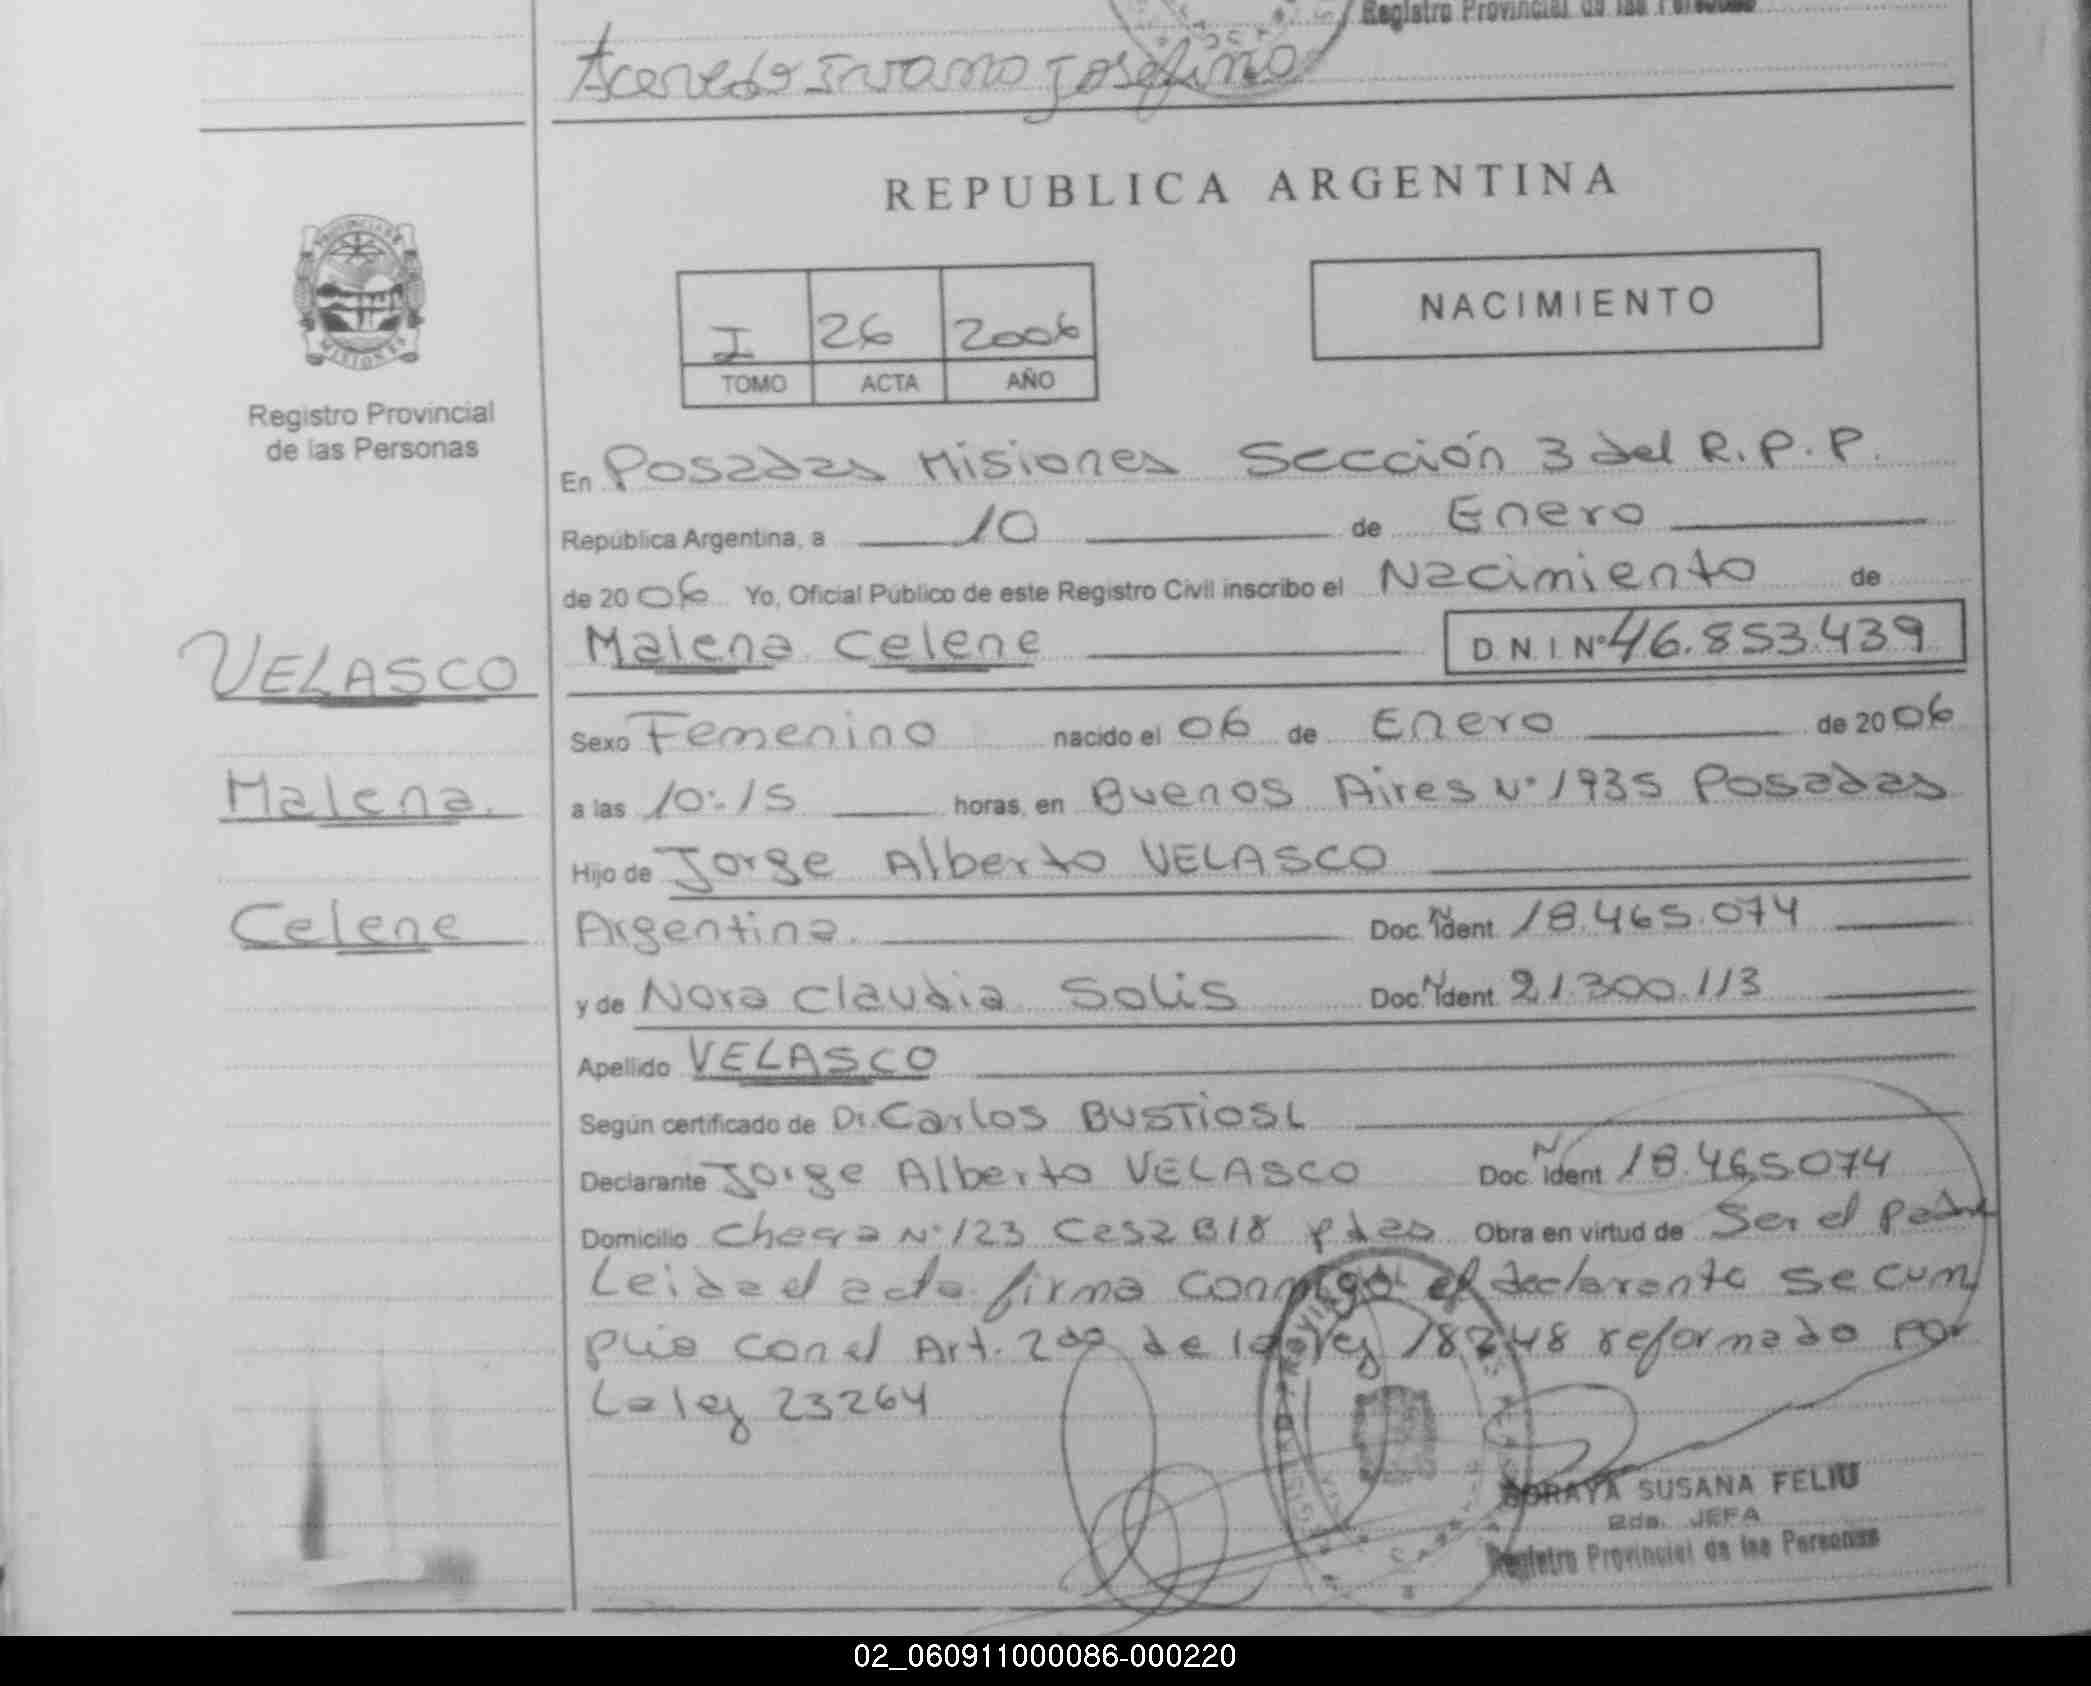 Registro Provincial de las Personas
Acevedo Ivana Josefina
REPUBLICA ARGENTINA
PROVINCIA DE
MISIONES
Registro Provincial
de las Personas
I 26 2006
TOMO ACTA AÑO
NACIMIENTO
En Posadas Misiones Sección 3 del R.P.P.
República Argentina, a 10 de Enero
de 2006 Yo, Oficial Público de este Registro Civil inscribo el Nacimiento de
VELASCO
Malena
Celene
Malena Celene D.N.I. Nº 46.853.439
Sexo Femenino nacido el 06 de Enero de 2006
a las 10:15 horas, en Buenos Aires Nº 1935 Posadas
Hijo de Jorge Alberto VELASCO
Argentina Doc. N Ident. 18.465.074
y de Nora Claudia Solis Doc. N Ident. 21.300.113
Apellido VELASCO
Según certificado de Dr Carlos
Declarante Jorge Alberto VELASCO Doc. N Ident 18.465074
Domicilio Nº 123 Casa 818 pdas Obra en virtud de Ser el padre
Leida el acta firma conmigo el declarante se cum
plio con el Art. 2do de la ley 18248 reformado por
La ley 23264
SORAYA SUSANA FELIU
2da. JEFA
Registro Provincial de las Personas
02_060911000086-000220